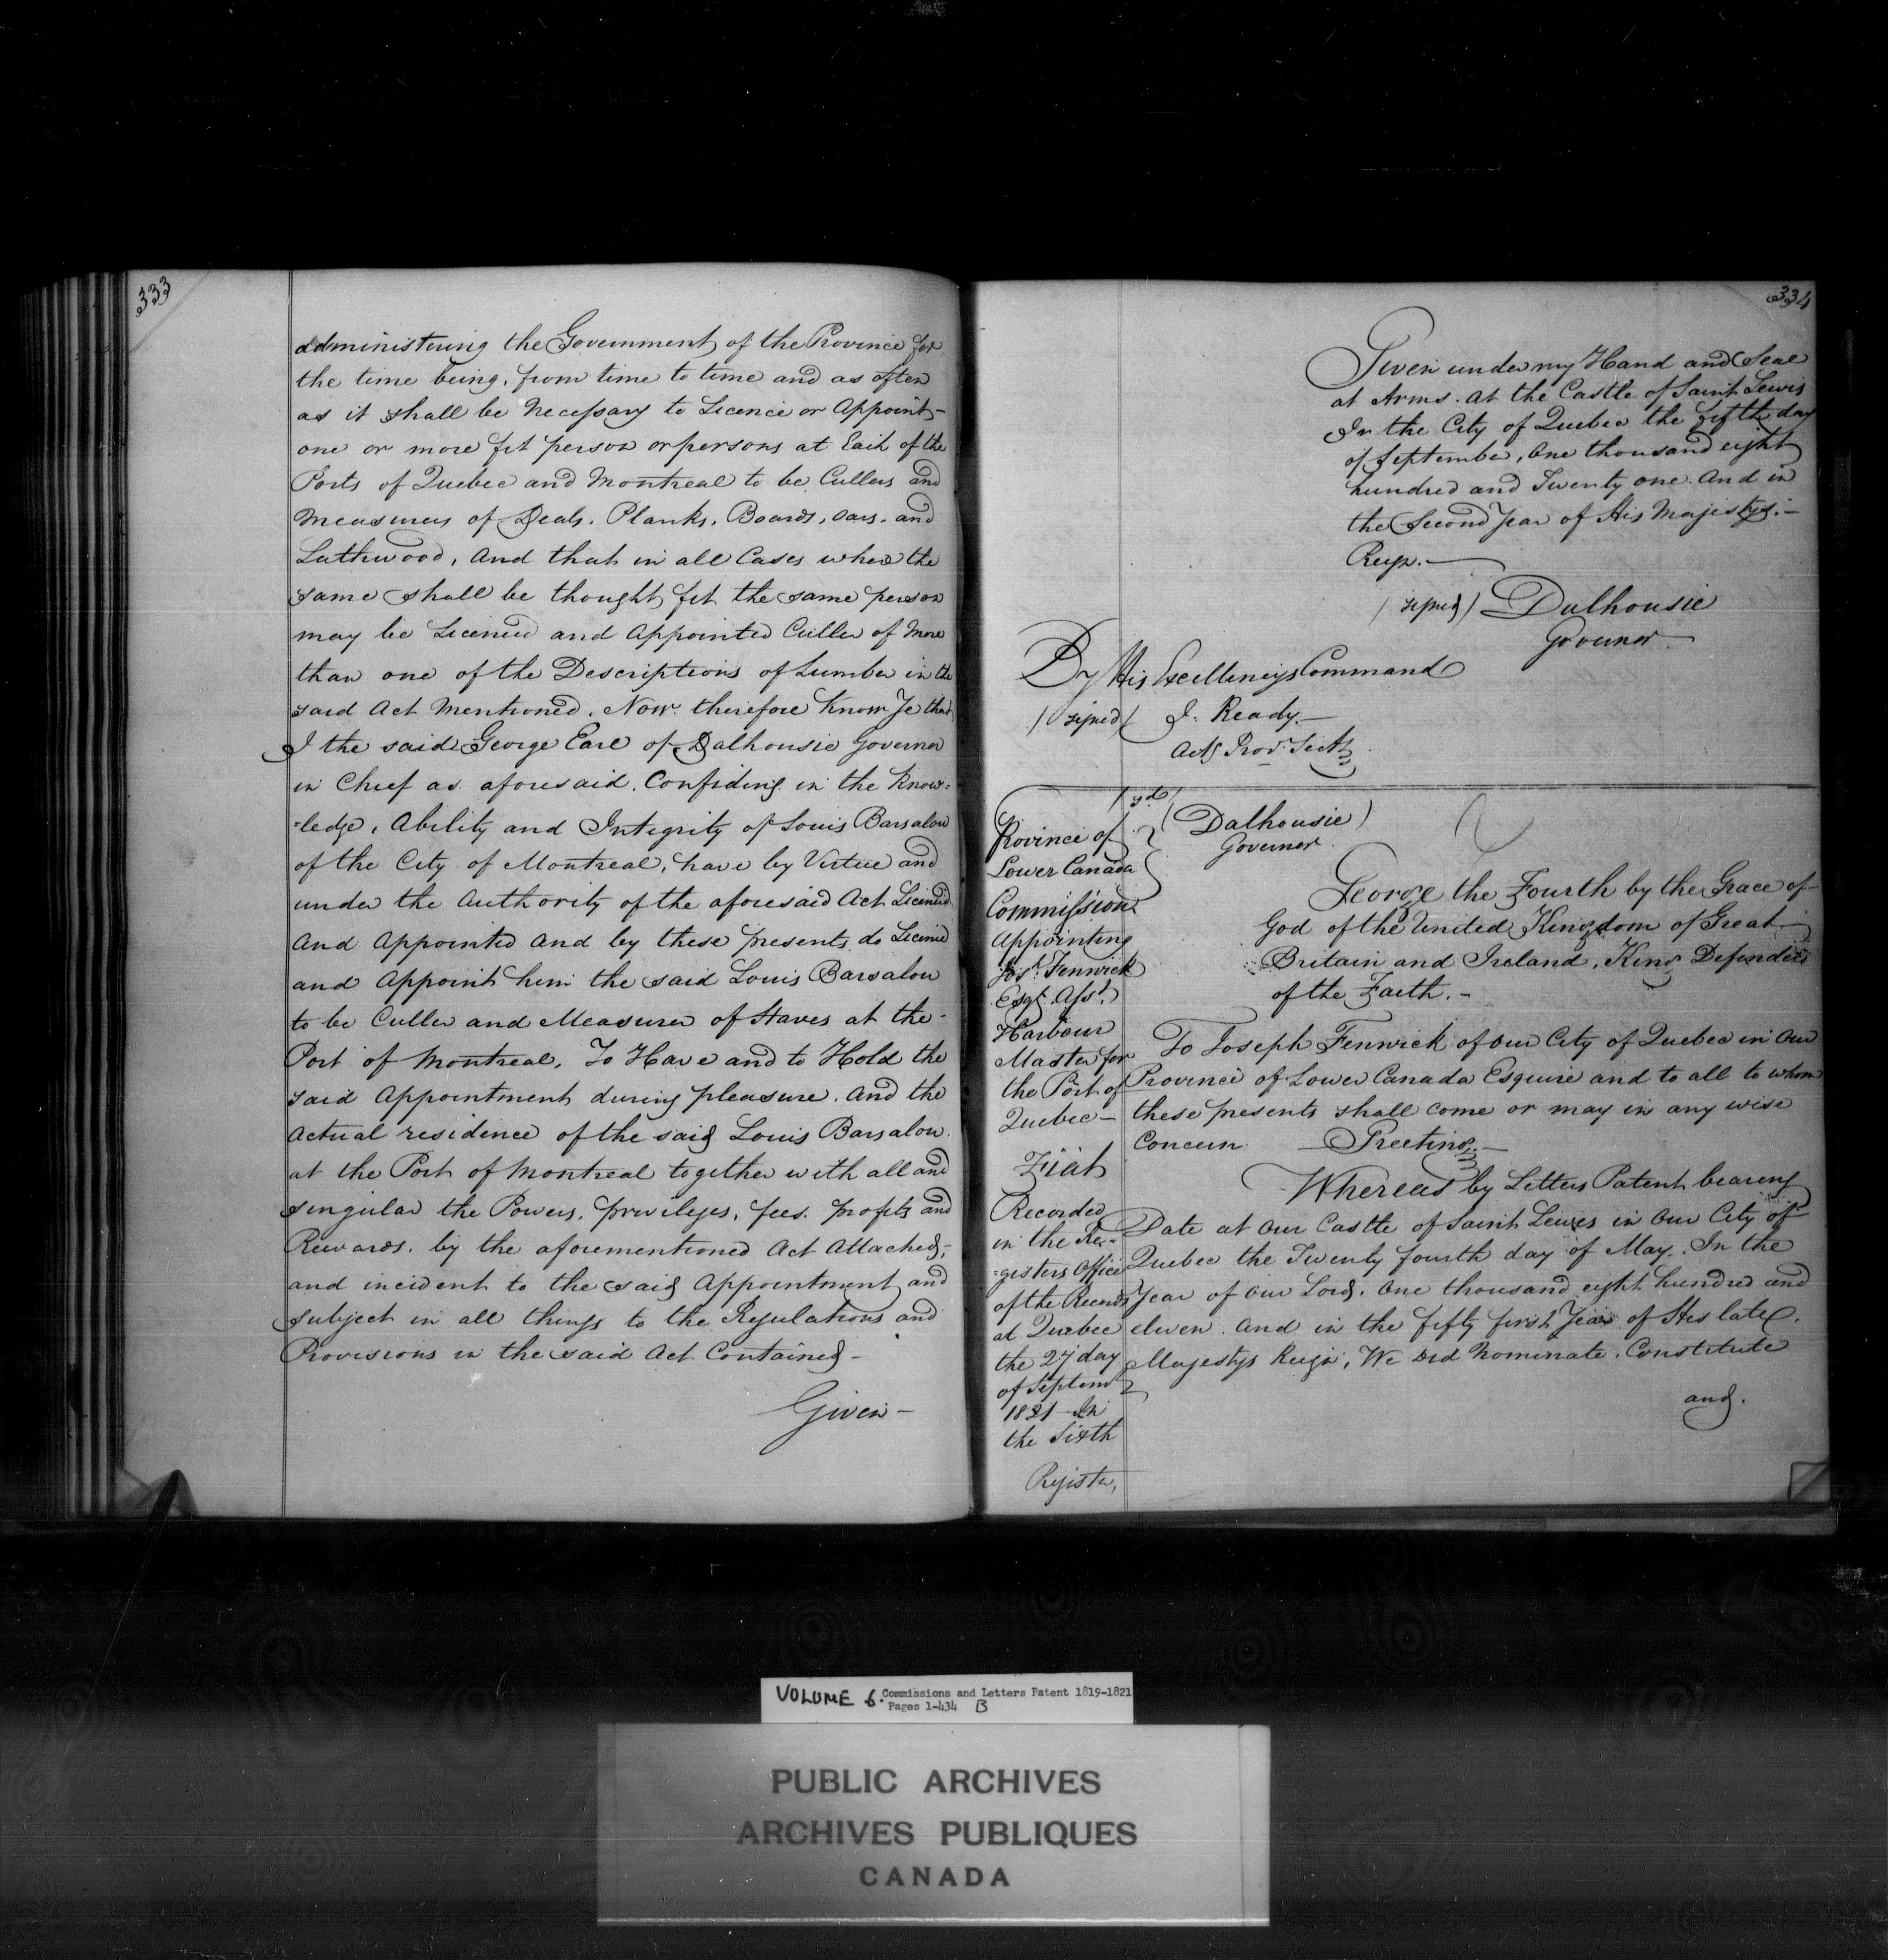 333
administering the Government of the Province for
the time being, from time to time and as often
as it shall be Necessary to Licence or Appoint-
one or more fit person or persons at Each of the
Ports of Quebec and Montreal to be Cullers and
Measurers of Deals, Planks, Boards, Oars, and
Lathwood, And that in all Cases where the
same shall be thought fit the same person
may be Licenced and Appointed Culler of More
than one of the Descriptions of Lumber in the
said Act Mentioned. Now therefore Know Ye that
I the said George Earl of Dalhousie Governor
in Chief as aforesaid, Confiding in the Know=
=ledge, Ability and Integrity of Louis Barsalou
of the City of Montreal, have by Virtue and
under the Authority of the aforesaid Act Licenced
And Appointed And by these presents do Licence
and Appoint him the said Louis Barsalou
to be Culler and Measurer of Staves at the-
Port of Montreal, To Have and to Hold the
said Appointment during pleasure, And the
Actual residence of the said Louis Barsalou
at the Port of Montreal together with all and
singular the Powers, privileges, fees, profits and
Rewards, by the aforementioned Act Attached,
and incident to the said Appointment and
subject in all things to the Regulations and
Provisions in the said Act Contained-
Given-
334
Given under my Hand and Seal
at Arms. at the Castle of Saint Lewis
In the City of Quebec the fifth day
of September, One thousand eight
hundred and Twenty one. And in
the Second Year of His Majestys.-
Reign.-
/signed/ Dalhousie
Governor
By His Excellencys Command
/signed/ J. Ready.-
Actg Provl. Secty
/sgd/
(Dalhousie)
Governor
Province of
Lower Canada
Commission
Appointing
Jos.h Fenwick
Esqr. Asst.
Harbour
Master for
the Port of
Quebec-
Fiat
Recorded
in the Re-
=gisters Office
of the Records
at Quebec
the 27 day
of Septem
1821 In
the Sixth
Register,
George the Fourth by the Grace of
God of the United Kingdom of Great
Britain and Ireland, King Defender
of the Faith.-
To Joseph Fenwick of our City of Quebec in Our
Province of Lower Canada Esquire and to all to whom
these presents shall come or may in any wise
Concern - Greeting.-
Whereas by Letters Patent bearing
Date at Our Castle of Saint Lewis in Our City of
Quebec the Twenty fourth day of May. In the
Year of Our Lord, One thousand eight hundred and
eleven. And in the fifty first Year of His late
Majestys Reign, We did Nominate, Constitute
and.
VOLUME 6. Commissions and Letters Patent 1819-1821
Pages 1-434 B
PUBLIC ARCHIVES
ARCHIVES PUBLIQUES
CANADA